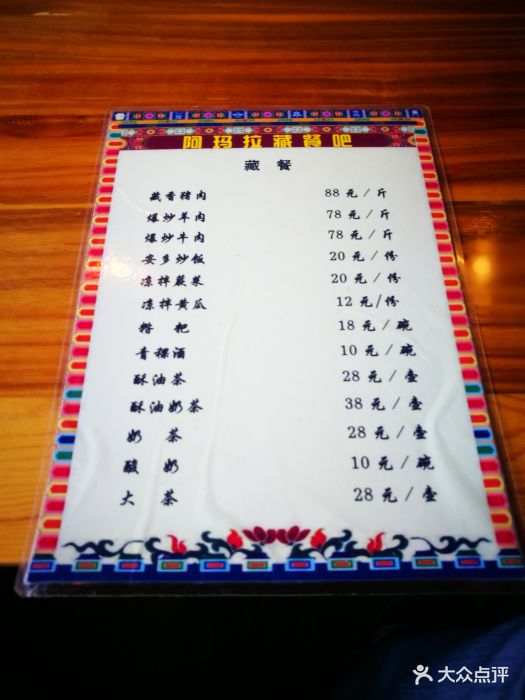 阿玛拉藏餐吧
藏 餐
藏香猪肉 88 元 / 斤
爆炒羊肉 78 元 / 斤
爆炒牛肉 78 元 / 斤
安多炒饭 20 元 / 份
凉拌蕨菜 20 元 / 份
凉拌黄瓜 12 元/份
糌 粑 18 元 / 碗
青稞酒 10 元 / 碗
酥油茶 28 元 / 壶
酥油奶茶 38 元 / 壶
奶 茶 28 元 / 壶
酸 奶 10 元 / 碗
大 茶 28 元 / 壶
大众点评